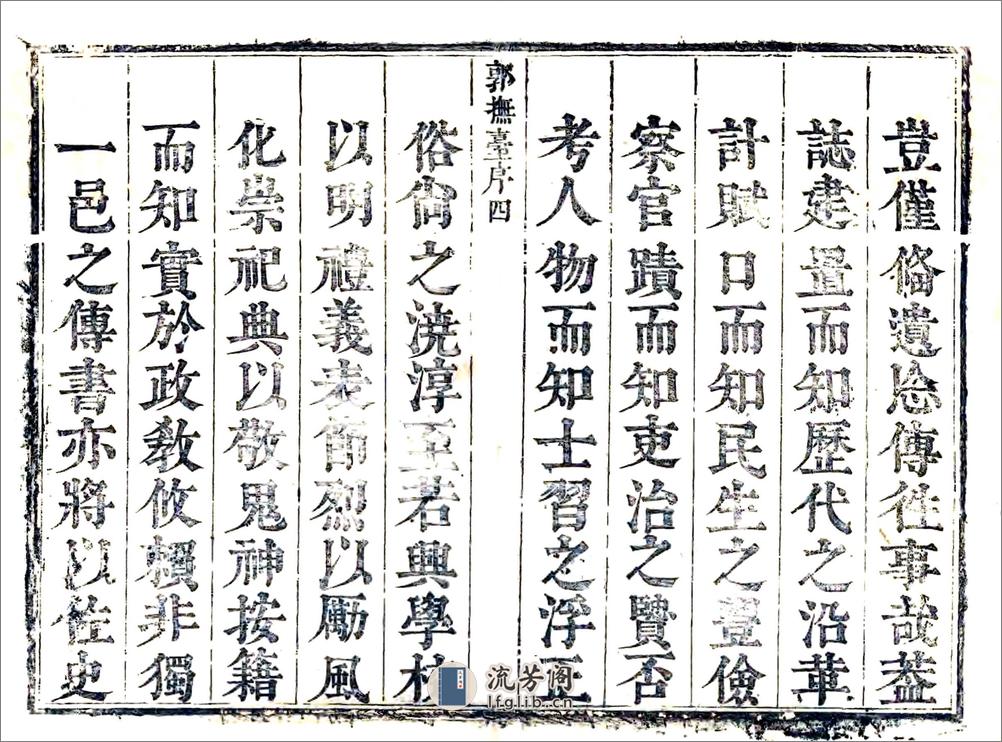 豈僅脩遺忘傳往事哉葢
誌建置而知歷代之沿革
計賦口而知民生之豐儉
察官蹟而知吏治之賢否
考人物而知士習之浮正
郭撫臺序 四
俗尙之澆淳至若興學校
以明禮義表節烈以勵風
化崇祀典以敬鬼神按籍
而知實於政敎攸賴非獨
一邑之傳書亦將以佐史
流芳阁
lfglib.cn